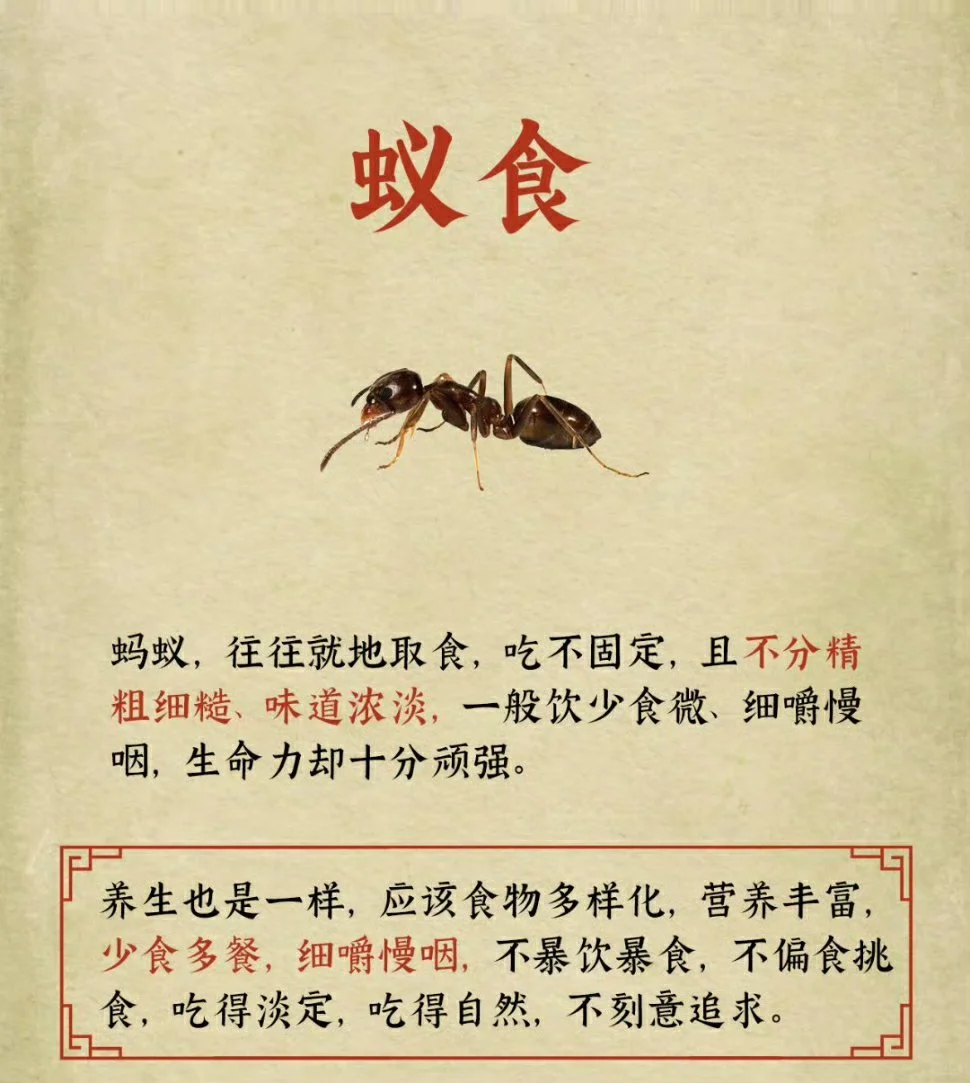 蚁食
蚂蚁，往往就地取食，吃不固定，且不分精
粗细糙、味道浓淡，一般饮少食微、细嚼慢
咽，生命力却十分顽强。
养生也是一样，应该食物多样化，营养丰富，
少食多餐，细嚼慢咽，不暴饮暴食，不偏食挑
食，吃得淡定，吃得自然，不刻意追求。